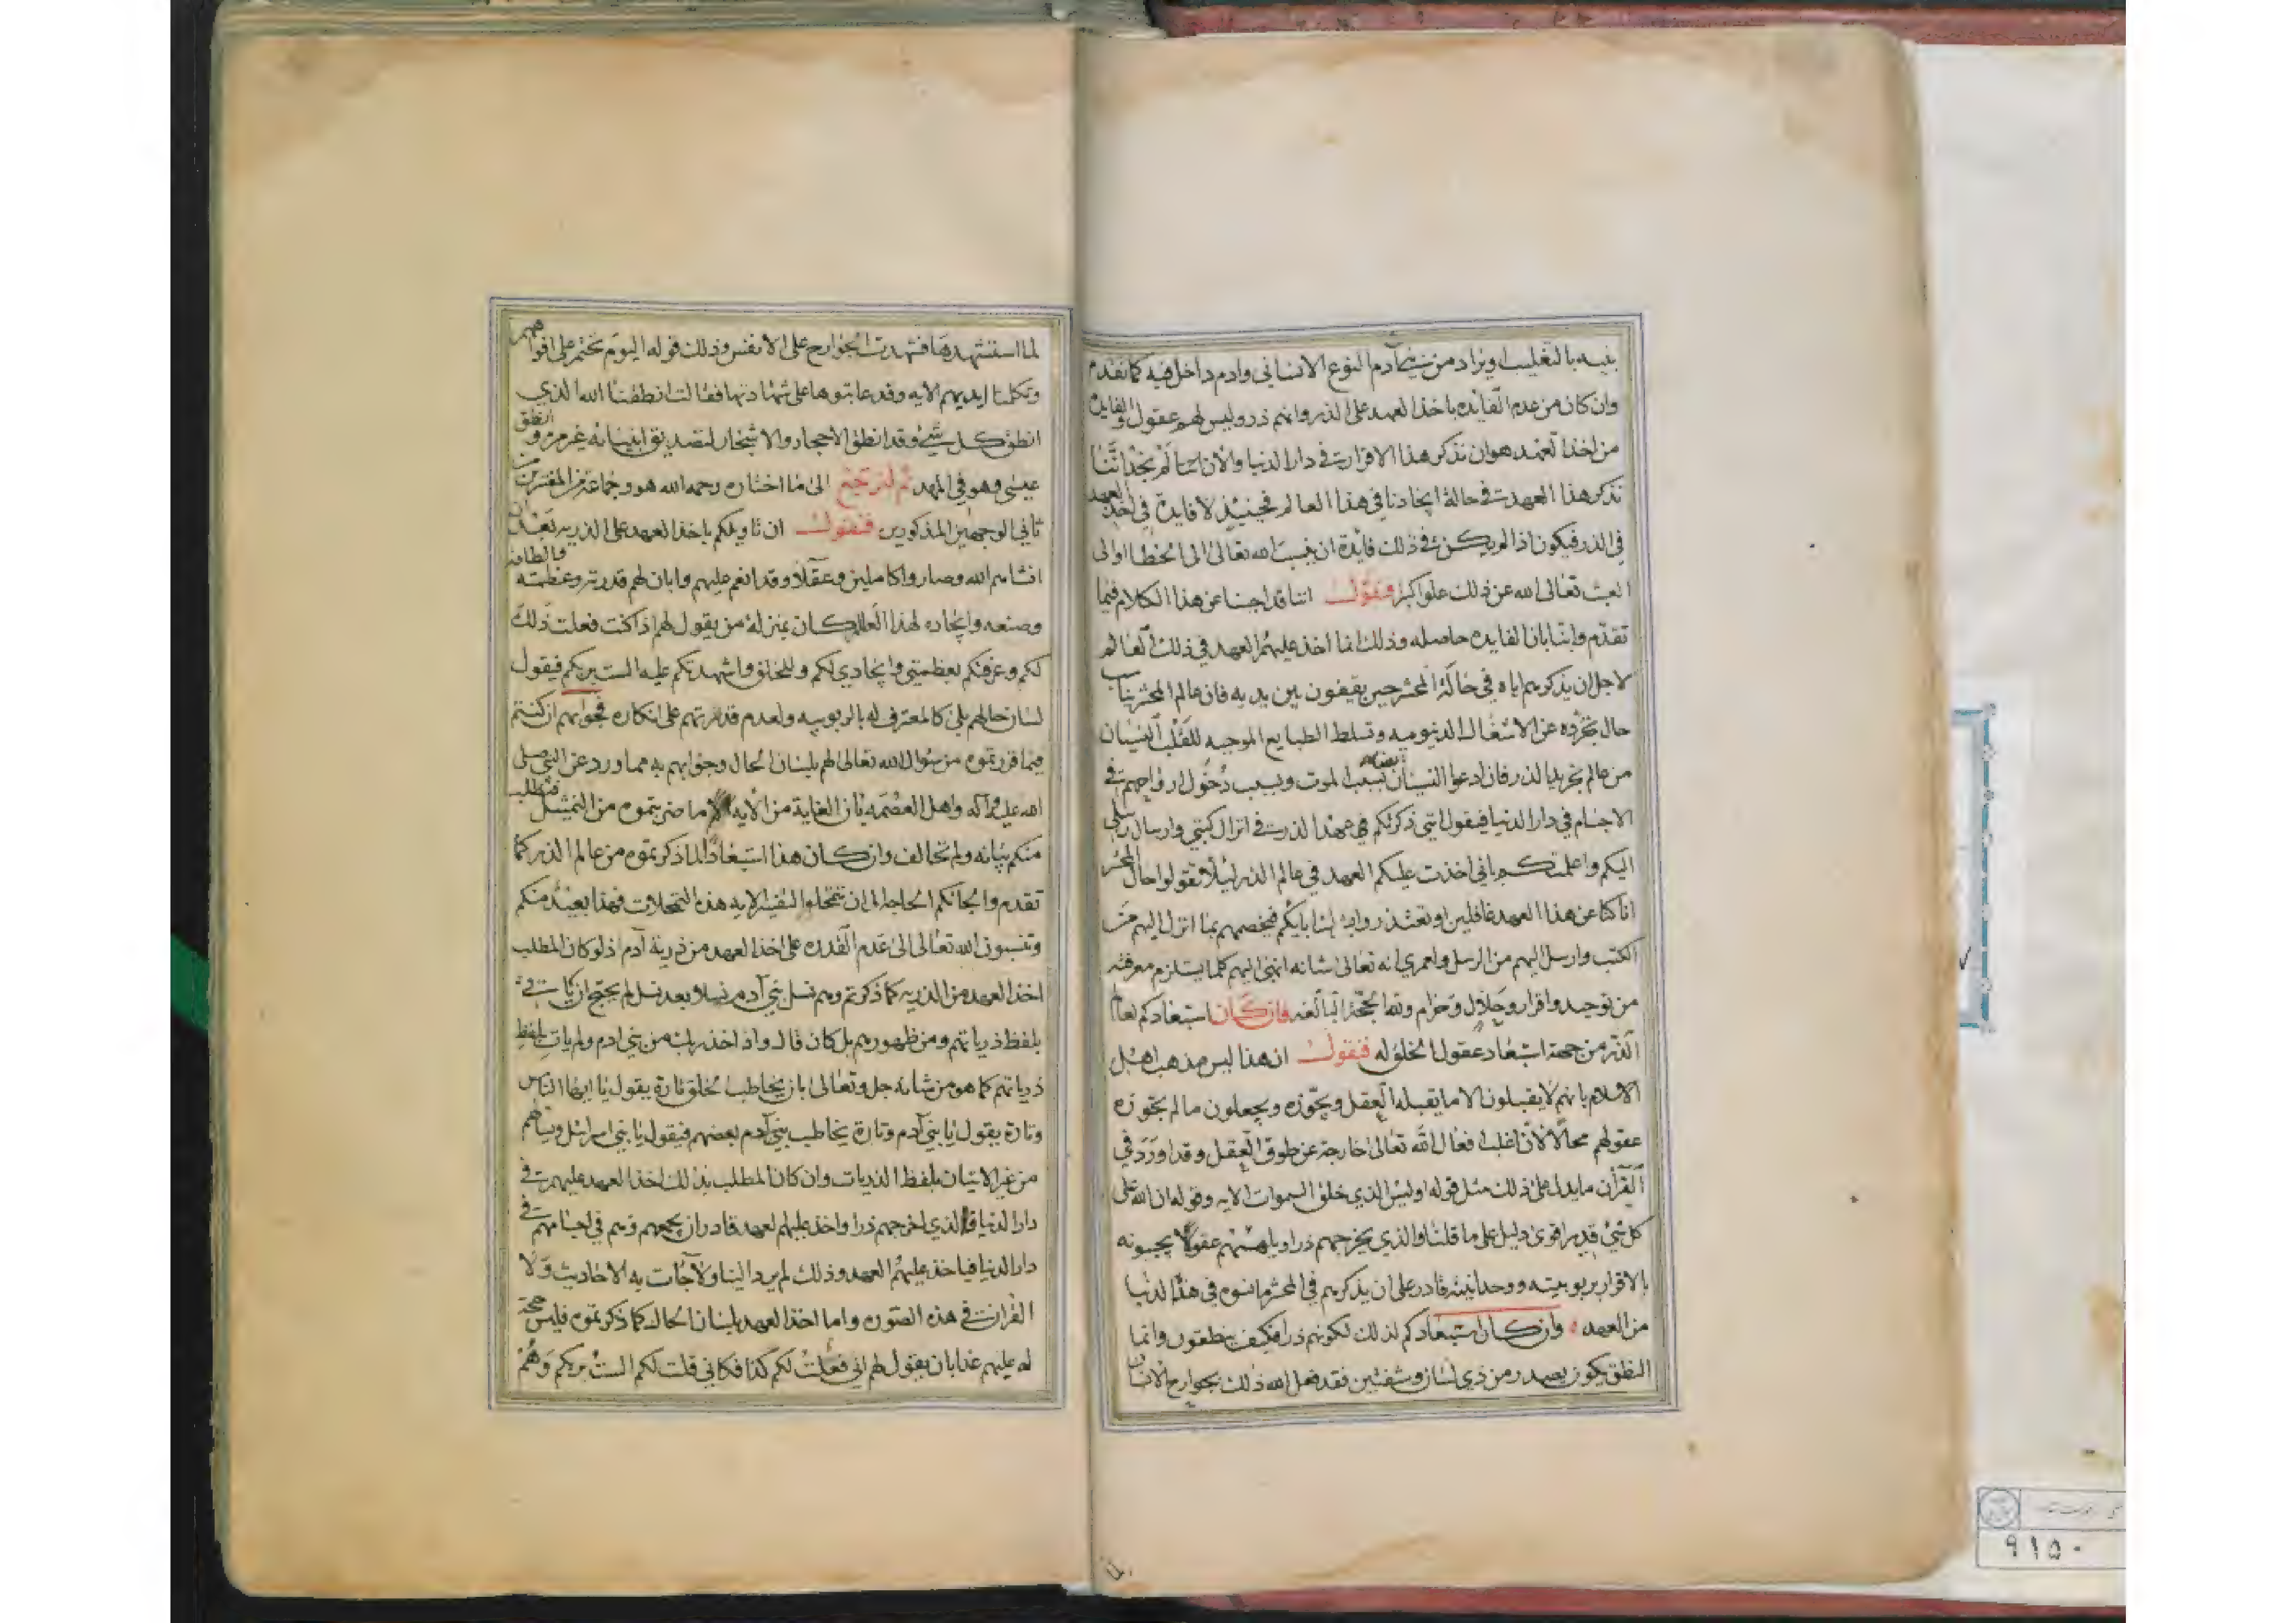 بنيه بالتغليب ويراد من بني آدم النوع الانساني وادم داخل فيه كما تقدم
وان كان من عدم الفائده باخذ العهد على الذر وانهم ذر وليس لهم عقول والفايده
من اخذ العهد هو ان نذكر هذا الاقرار في دار الدنيا والآن اننا لم نجد اننا
نذكر هذا العهد في حالة ايجادنا في هذا العالم فحينئذ لا فايدة في اخذ العهد
في الذر فيكون اذا لم يكن في ذلك فايدة ان ينسب الله تعالى الى الخطا او الى
العبث تعالى الله عن ذلك علوا كبيرا فنقول اننا قد اجبنا عن هذا الكلام فيما
تقدم واثبتنا بان الفايده حاصله وذلك انما اخذ عليهم العهد في ذلك العالم
لاجل ان يذكرهم اياه في حالة المحشر حين يقفون بين يديه فان عالم المحشر يناسب
حال تجرده عن الاشغال الدنيوميه وتسلط الطبايع الموجبه للقلب النسيان
من عالم تجريد الذر فان ادعوا النسيان بسبب الموت وبسبب دخول ارواحهم في
الاجسام في دار الدنيا فيقول انني ذكرتكم في عهد الذر في انزال كتبي وارسال رسلي
اليكم واعلمتكم باني اخذت عليكم العهد في عالم الذر ليلا تقولوا حال المحشر
انا كنا عن هذا العهد غافلين او تعتذروا بابائكم فيخصمهم بما انزل اليهم من
الكتب وارسل اليهم من الرسل ولعمري انه تعالى شانه انهى اليهم كلما يستلزم معرفته
من توحيد واقرار وحلال وحرام ولله الحجة البالغه فان كان استبعادكم لعالم
الذر من جهة استبعاد عقول المخلوله فنقول ان هذا ليس مذهب اهل
الاسلام بانهم لا يقبلون الا ما يقبله العقل ويجوزه ويجعلون ما لم يجوزه
عقولهم محالا لان اغلب افعال الله تعالى خارجة عن طوق العقل وقد اورد في
القرآن ما يدل على ذلك مثل قوله اوليس الذي خلق السموات الايه وقوله ان الله على
كل شيء قدير اقوى دليل على ما قلنا والذي يخرجهم ذرا عقولا يجيبونه
بالاقرار بربوبيته ووحدانيته قادر على ان يذكرهم في المحشر ما نسوه في هذه الدنيا
من العهد وان كان استبعادكم لذلك لكونهم ذرا فكيف ينطقون وانما
النطق يكون يصدر من ذي لسان وشفتين فقد فعل الله ذلك بجوارح الانسان
لما استشهدها فشهدت الجوارح على الانفس وذلك قوله اليوم نختم على افواههم
وتكلمنا ايديهم الايه وقد عاتبوها على شهادتها فقالت انطقنا الله الذي
انطق كل شيء وقد انطق الاحجار والاشجار لتصديق انبيائه غير مرة وانطق
عيسى وهو في المهد ثم لنرجع الى ما اختاره رحمه الله هو وجماعة من المفسرين من
ثاني الوجهين المذكورين فنقول ان تاويلكم باخذ العهد على الذريه بعد ان
انشاهم الله وصاروا كاملين وعقلا وقد انعم عليهم وابان لهم قدرته وعظمته والطافه
وصنعه وايجاده لهذا العالم كان بمنزلة من يقول لهم اذا كنت فعلت ذلك
لكم وعرفتكم بعظمتي وايجادي لكم وللخلق واشهدتكم عليه الست بربكم فيقول
لسان حالهم بلى كالمعترف له بالربوبيه ولعدم قدرتهم على انكاره فجوابهم ان كنتم
فيما قررتموه من سئوال الله تعالى لهم بلسان الحال وجوابهم به مما ورد عن النبي صلى
الله عليه وآله واهل العصمه بان الغاية من الآيه ما ضربتموه من التمثيل فنطلب
منكم بيانه ولم نخالف وان كان هذا استبعادا لما ذكرتموه من عالم الذر كما
تقدم والجاتكم الحاجة الى ان تتمحلوا لتفسير الايه هذه التمحلات فهذا بعيد منكم
وتنسبون الله تعالى الى عدم القدره على اخذ العهد من ذرية آدم اذ لو كان المطلب
اخذ العهد من الذريه كما ذكرتم وهم نسل بني آدم نسلا بعد نسل لم يحتج ان ياتي
بلفظ ذرياتهم ومن ظهورهم بل كان قال واذ اخذ ربك من بني ادم ولم يات بلفظ
ذرياتهم كما هو من شانه جل وتعالى بان يخاطب الخلق تارة يقول يا ايها الناس
وتارة يقول يا بني آدم وتارة يخاطب بني آدم بعضهم فيقول يا بني اسرائيل وينبأهم
من غير الاتيان بلفظ الذريات وان كان المطلب بذلك اخذ العهد عليهم في
دار الدنيا فالذي اخرجهم ذرا واخذ عليهم العهد قادر ان يجمعهم وهم في اجسامهم في
دار الدنيا فياخذ عليهم العهد وذلك لم يرد الينا ولا جآت به الاحاديث ولا
القران في هذه الصوره واما اخذ العهد بلسان الحال كما ذكرتموه فليس حجة
له عليهم غدا بان يقول لهم اني فعلت لكم كذا فكاني قلت لكم الست بربكم وهم
٩١٥٠